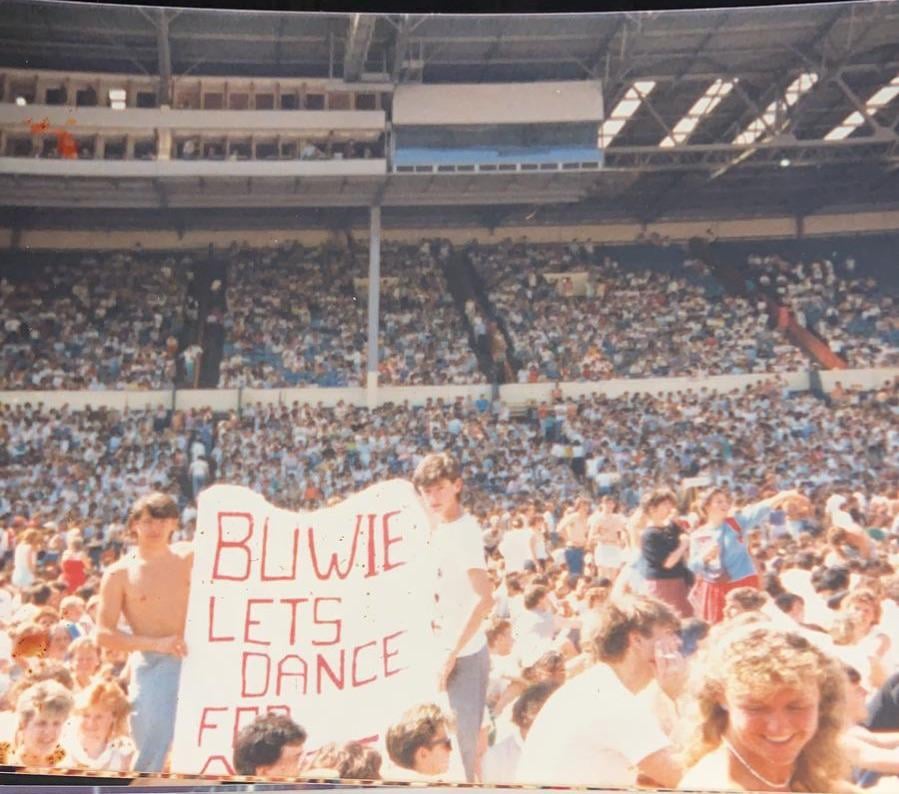 BUWIE
LETS
DANCE
FOR